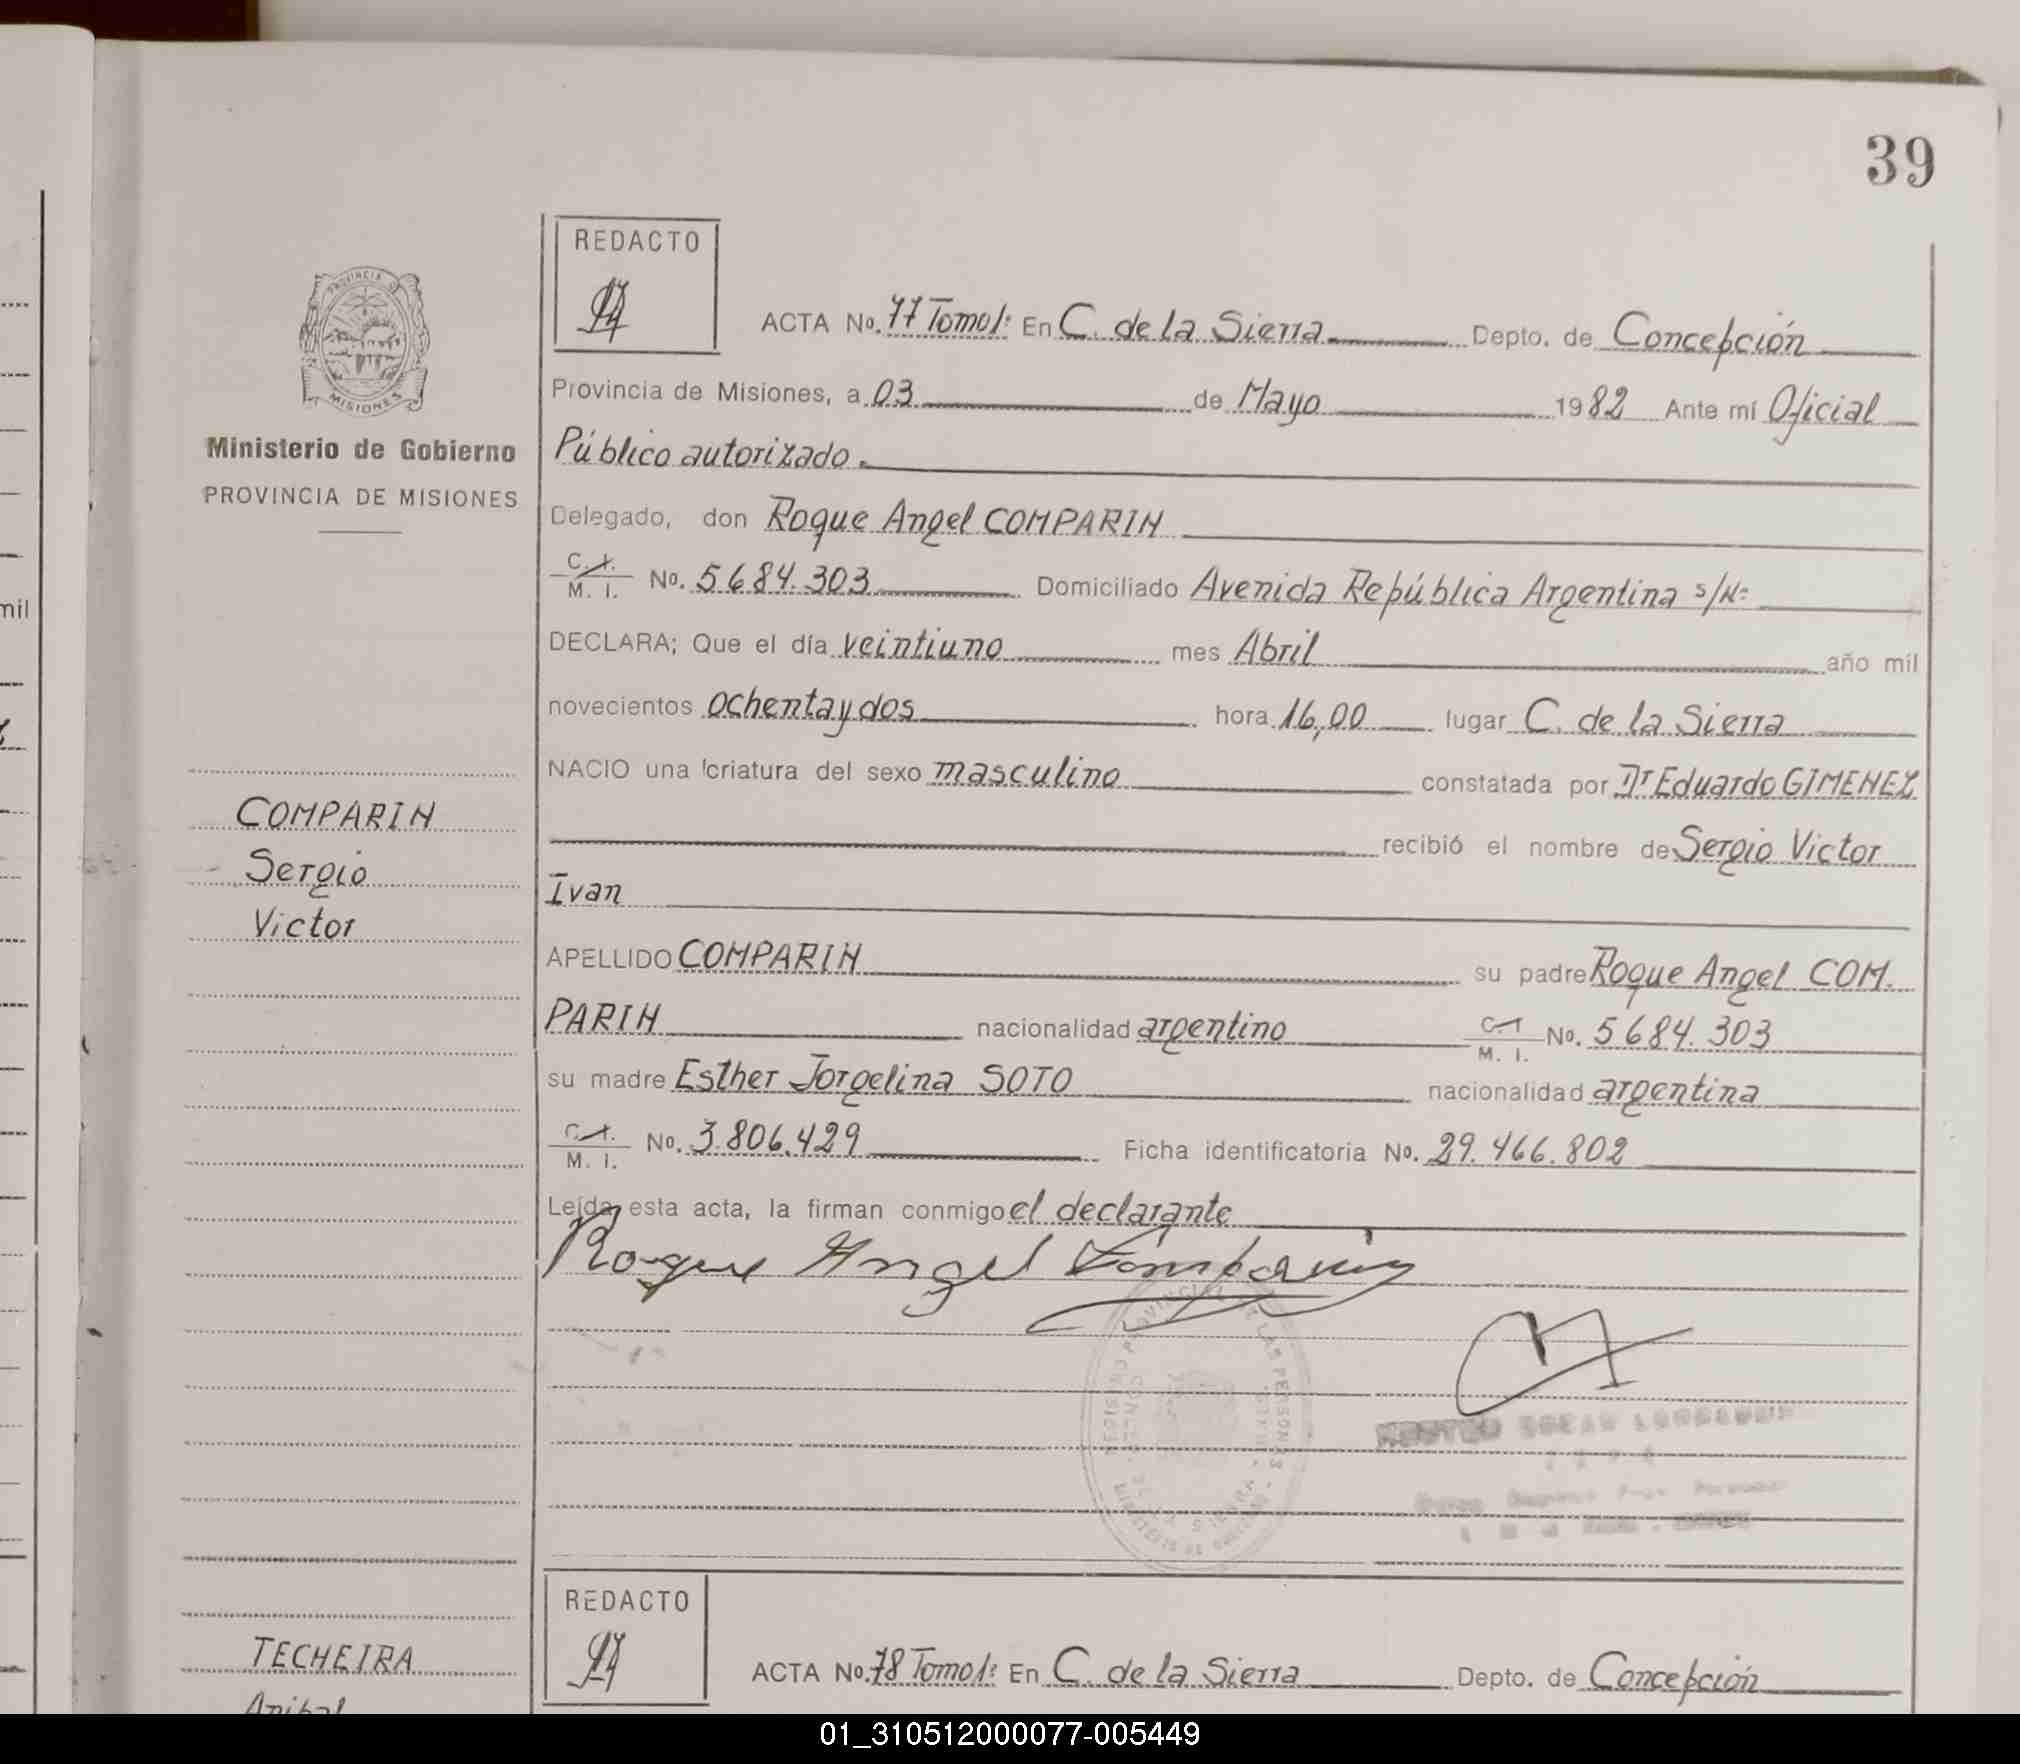 39
REDACTO
PROVINCIA DE
MISIONES
Ministerio de Gobierno
PROVINCIA DE MISIONES
ACTA No. 77 Tomo 1º En C. de la Sierra Depto. de Concepción
Provincia de Misiones, a 03 de Mayo 1982 Ante mí Oficial
Público autorizado.
Delegado, don Roque Angel COMPARIN
C. I. M. I. No. 5.684.303 Domiciliado Avenida República Argentina s/Nº
DECLARA; Que el día veintiuno mes Abril año mil
novecientos ochenta y dos hora 16,00 lugar C. de la Sierra
NACIO una criatura del sexo masculino constatada por Dr Eduardo GIMENEZ
recibió el nombre de Sergio Victor
Ivan
COMPARIN
Sergio
Victor
APELLIDO COMPARIN su padre Roque Angel COM.
PARIN nacionalidad argentino C. I. M. I. No. 5.684.303
su madre Esther Jorgelina SOTO nacionalidad argentina
C. I. M. I. No. 3.806.429 Ficha identificatoria No. 29.466.802
Leída esta acta, la firman conmigo el declarante
Roque Angel Comparin
mil
REDACTO
ACTA No. 78 Tomo 1º En C. de la Sierra Depto. de Concepción
TECHEIRA
Anibal
01_310512000077-005449